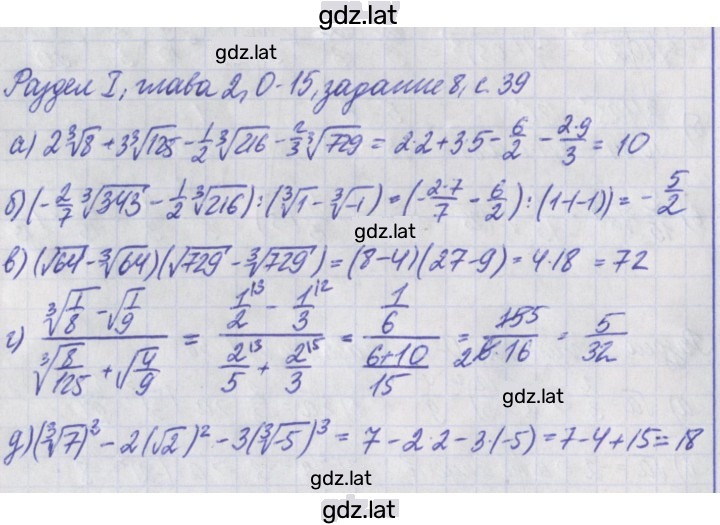 gdz.lat
gdz.lat
Раздел I, глава 2, О-15, задание 8, с. 39
а) 2∛8 + 3∛125 - 1/2 ∛216 - 2/3 ∛729 = 2·2 + 3·5 - 6/2 - 2·9/3 = 10
б) (-2/7 ∛343 - 1/2 ∛216) : (∛1 - ∛-1) = (-2·7/7 - 6/2) : (1-(-1)) = -5/2
gdz.lat
в) (√64 - ∛64)(√729 - ∛729) = (8-4)(27-9) = 4·18 = 72
г) (∛(1/8) - √(1/9)) / (∛(8/125) + √(4/9)) = (1/2^13 - 1/3^12) / (2/5^13 + 2/3^15) = (1/6) / ((6+10)/15) = 155/(2 6·16) = 5/32
gdz.lat
д) (∛7)³ - 2(√2)² - 3(∛-5)³ = 7 - 2·2 - 3·(-5) = 7 - 4 + 15 = 18
gdz.lat
gdz.lat